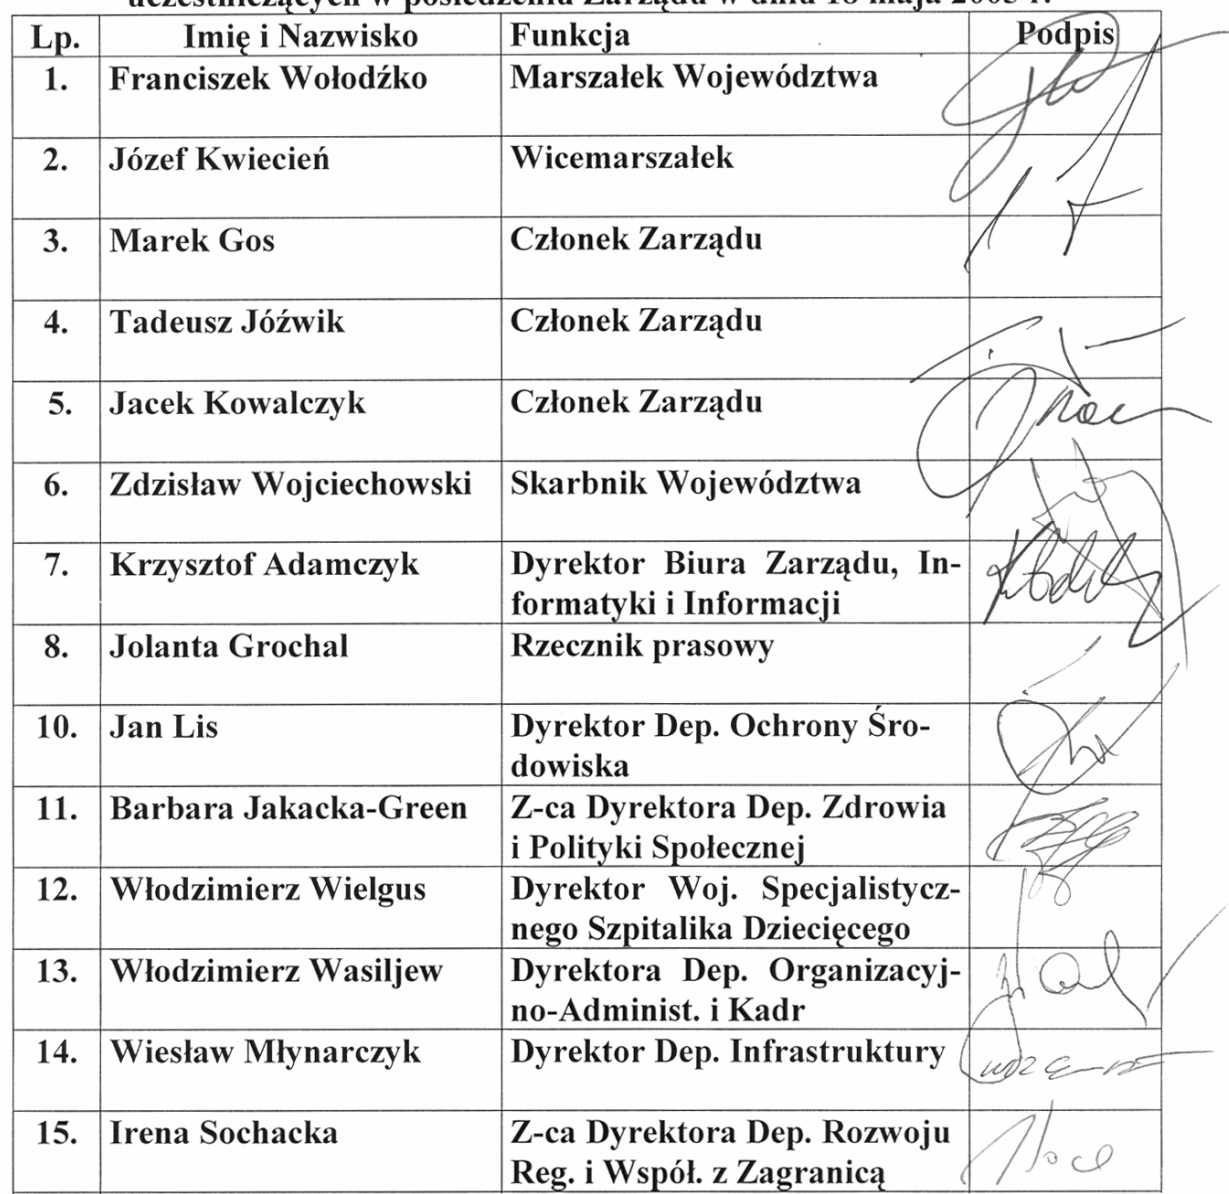 uczestniczących w posiedzeniu Zarządu w dniu 18 maja 2005 r.
Lp. Imię i Nazwisko Funkcja Podpis
1. Franciszek Wołodźko Marszałek Województwa
2. Józef Kwiecień Wicemarszałek
3. Marek Gos Członek Zarządu
4. Tadeusz Jóźwik Członek Zarządu
5. Jacek Kowalczyk Członek Zarządu
6. Zdzisław Wojciechowski Skarbnik Województwa
7. Krzysztof Adamczyk Dyrektor Biura Zarządu, In-
formatyki i Informacji
8. Jolanta Grochal Rzecznik prasowy
10. Jan Lis Dyrektor Dep. Ochrony Śro-
dowiska
11. Barbara Jakacka-Green Z-ca Dyrektora Dep. Zdrowia
i Polityki Społecznej
12. Włodzimierz Wielgus Dyrektor Woj. Specjalistycz-
nego Szpitalika Dziecięcego
13. Włodzimierz Wasiljew Dyrektora Dep. Organizacyj-
no-Administ. i Kadr
14. Wiesław Młynarczyk Dyrektor Dep. Infrastruktury
15. Irena Sochacka Z-ca Dyrektora Dep. Rozwoju
Reg. i Współ. z Zagranicą